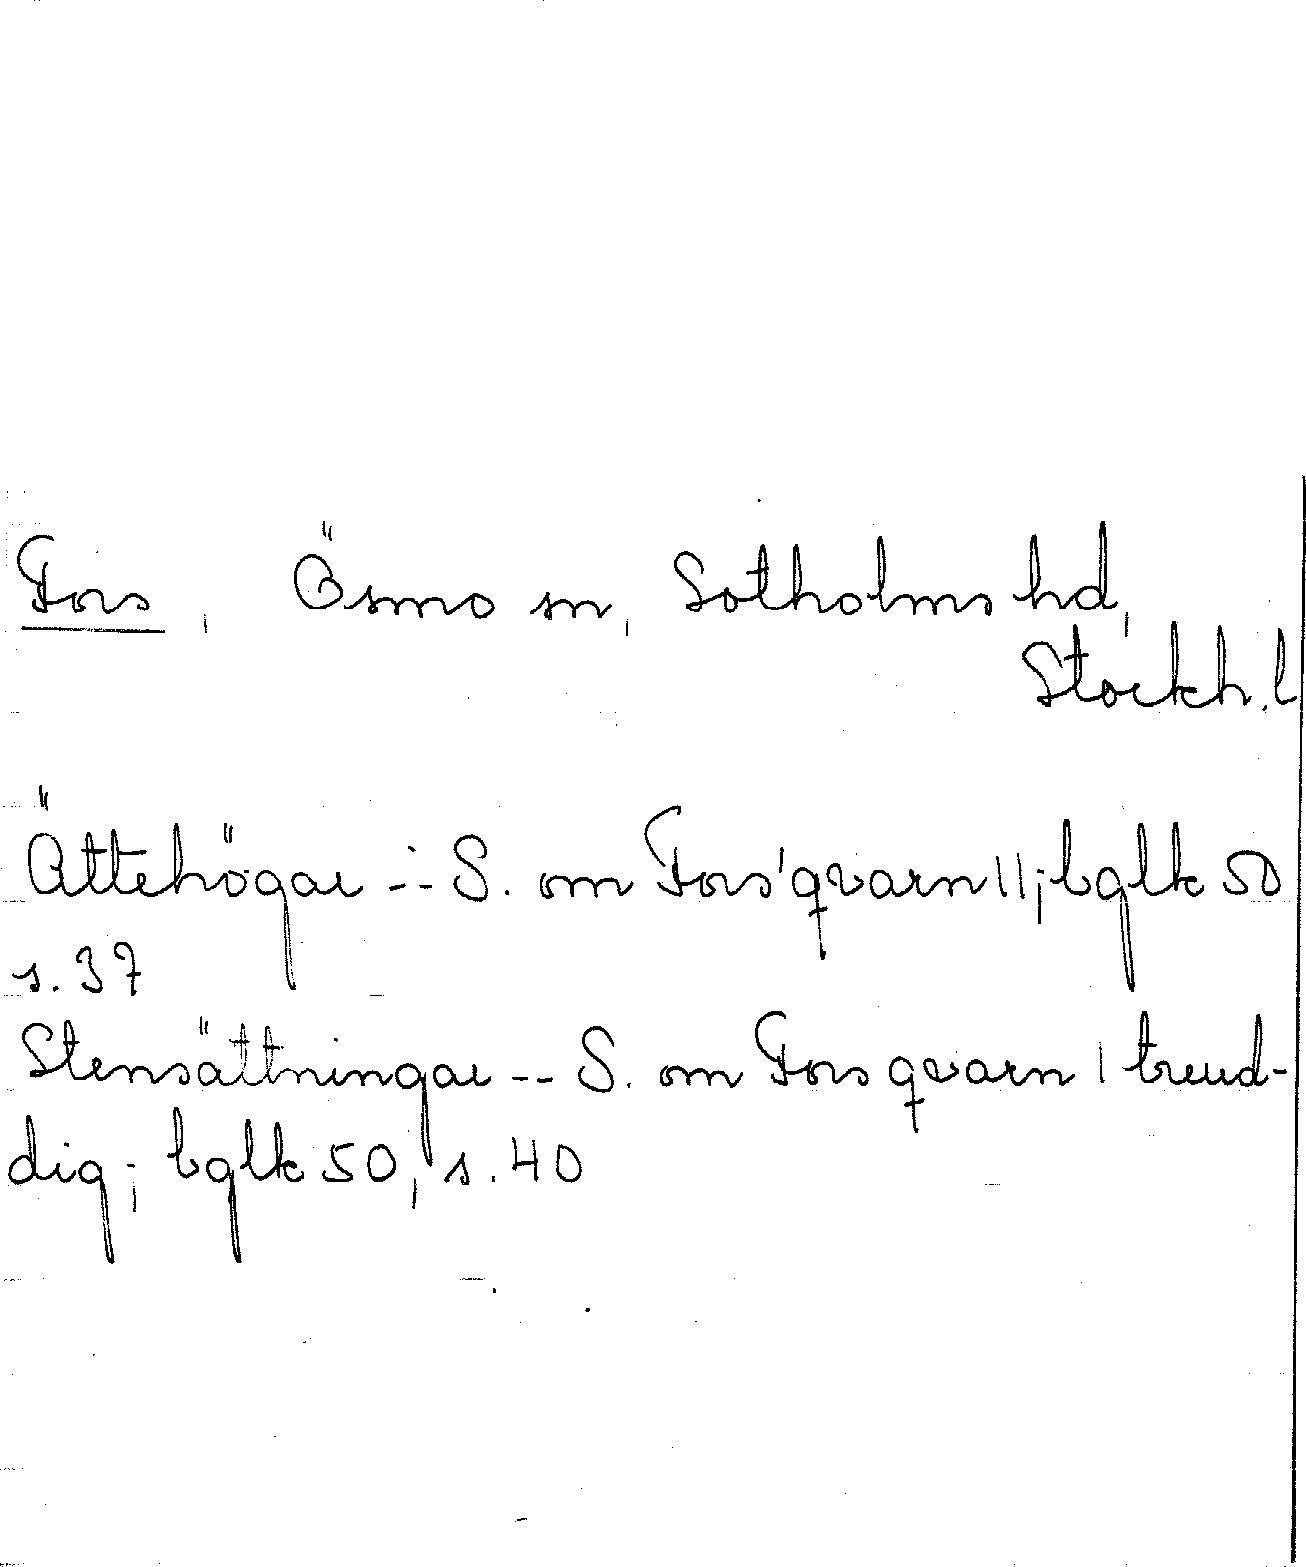 Fors, Ösmo sn, Sotholms hd,
Stockh. l
Ättehögar -- S. om Fors' qvarn 11; bglk 50
s. 37
Stensättningar -- S. om Fors qvarn 1 treud-
dig; bglk 50, s. 40